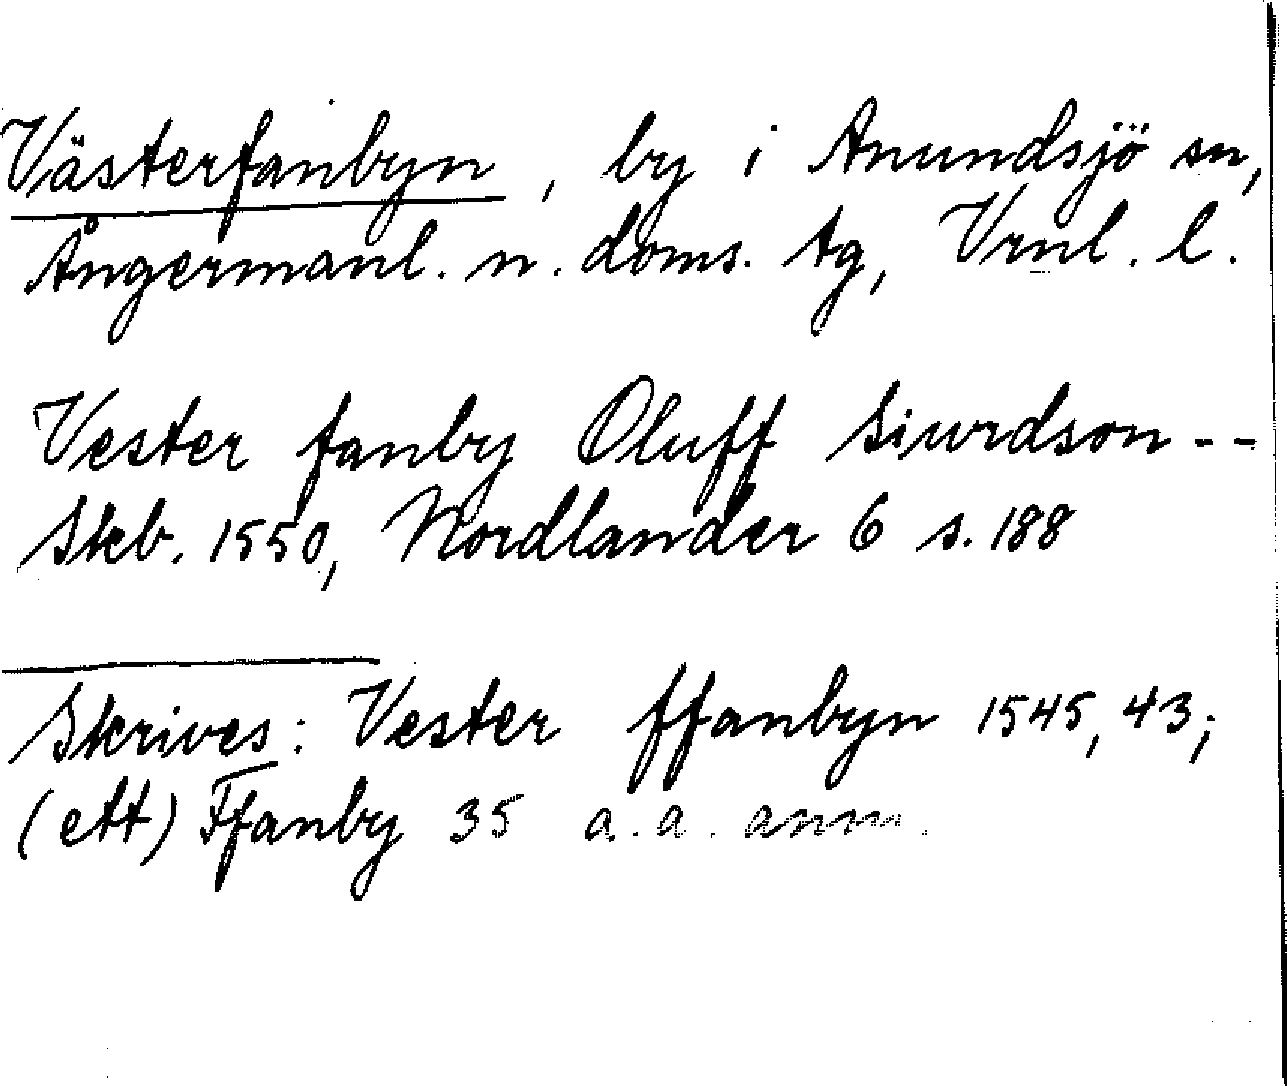 Västerfanbyn, by i Anundsjö sn,
Ångermanl. n. doms. tg, Vrnl. l.
Vester fanby Oluff Siurdson --
Skb. 1550, Nordlander 6 s. 188
Skrives: Vester ffanbyn 1545, 43;
(ett) Ffanby 35 a. a. anm.